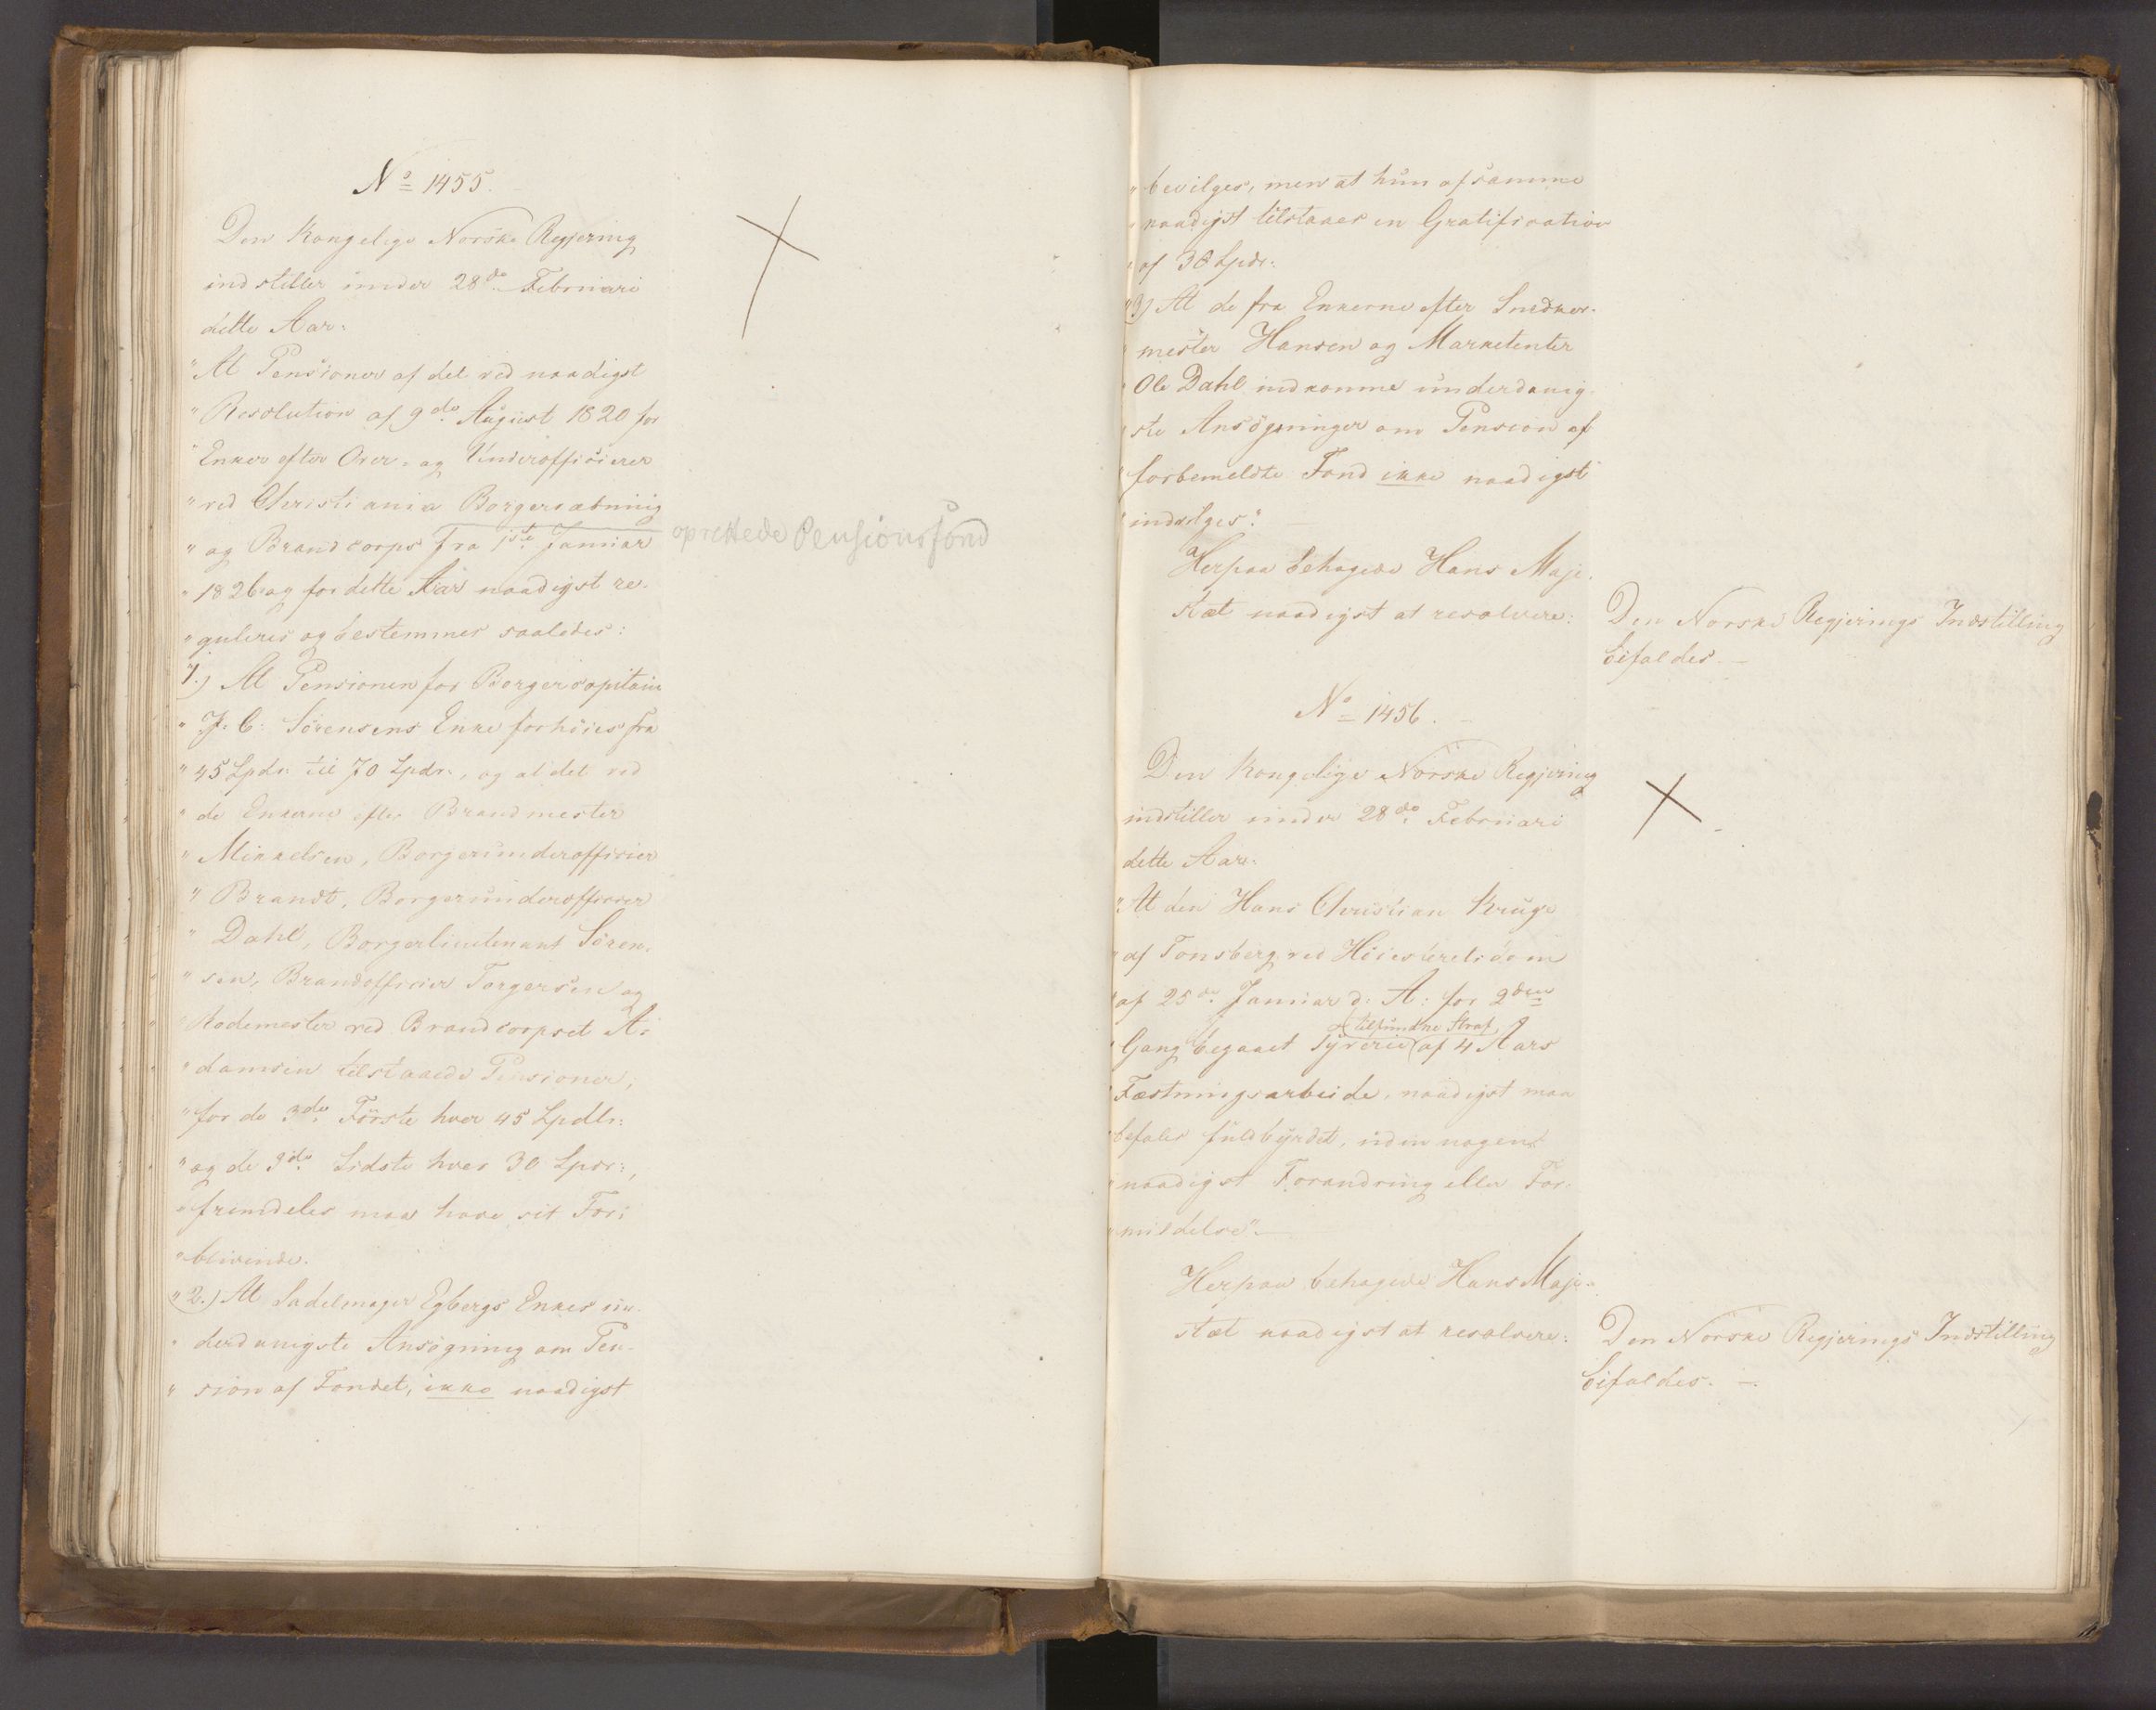 No 1455.
Den Kongelige Norske Regjering
indstiller under 28de Februari
dette Aar:
"At Pensioner af det ved naadigst
"Resolution af 9de August 1820 for
"Enker efter Over- og Underofficierer
"ved Christiania Borgervæbning
"og Brandcorps fra 1ste Januar oprettede Pensionsfond
"1826 og for dette Aar naadigst re-
"guleres og bestemmes saaledes:
"1.) At Pensionen for Borgercapitain
"J. C. Sörensens Enke forhöies fra
"45 Spdr. til 70 Spdr., og at det ved
"de Enkerne efter Brandmester
"Mikkelsen, Borgerunderofficier
"Brandt, Borgerunderofficier
"Dahl, Borgerlieutenant Sören-
"sen, Brandofficier Torgersen og
"Rodemester ved Brandcorpset A-
"damsen tilstaaede Pensioner,
"for de 3de Förste hver 45 Spdlr:
"og de 3de Sidste hver 30 Spdr:,
"fremdeles maa have sit For-
"blivende.
"2.) At Sadelmager Egbergs Enkes un-
"derdanigste Ansögning om Pen-
"sion af Fondet, ikke naadigst
"bevilges, men at hun af samme
"naadigst tilstaaes en Gratification
"af 30 Spdr.
"3) At de fra Enkerne efter Snedker-
"mester Hansen og Marketenter
"Ole Dahl indkomne underdanig-
"ste Ansögninger om Pension af
"forbemeldte Fond ikke naadigst
"indvilges."
Herpaa behagede Hans Maje-
stæt naadigst at resolvere:
Den Norske Regjerings Indstilling
bifaldes. —
No 1456. —
Den Kongelige Norske Regjering
indstiller under 28de Februari
dette Aar:
"At den Hans Christian Kruge
"af Tonsberg ved Höiesteretsdom
"af 25de Januar d: A: for 2den
tilfundne Straf
"Gang begaaet Tyverie af 4 Aars
"Fæstningsarbeide, naadigst maa
"befales fuldbyrdet, uden nogen
"naadigst Forandring eller For-
"mildelse". —
Herpaa behagede Hans Maje-
stæt naadigst at resolvere:
Den Norske Regjerings Indstilling
bifaldes. —